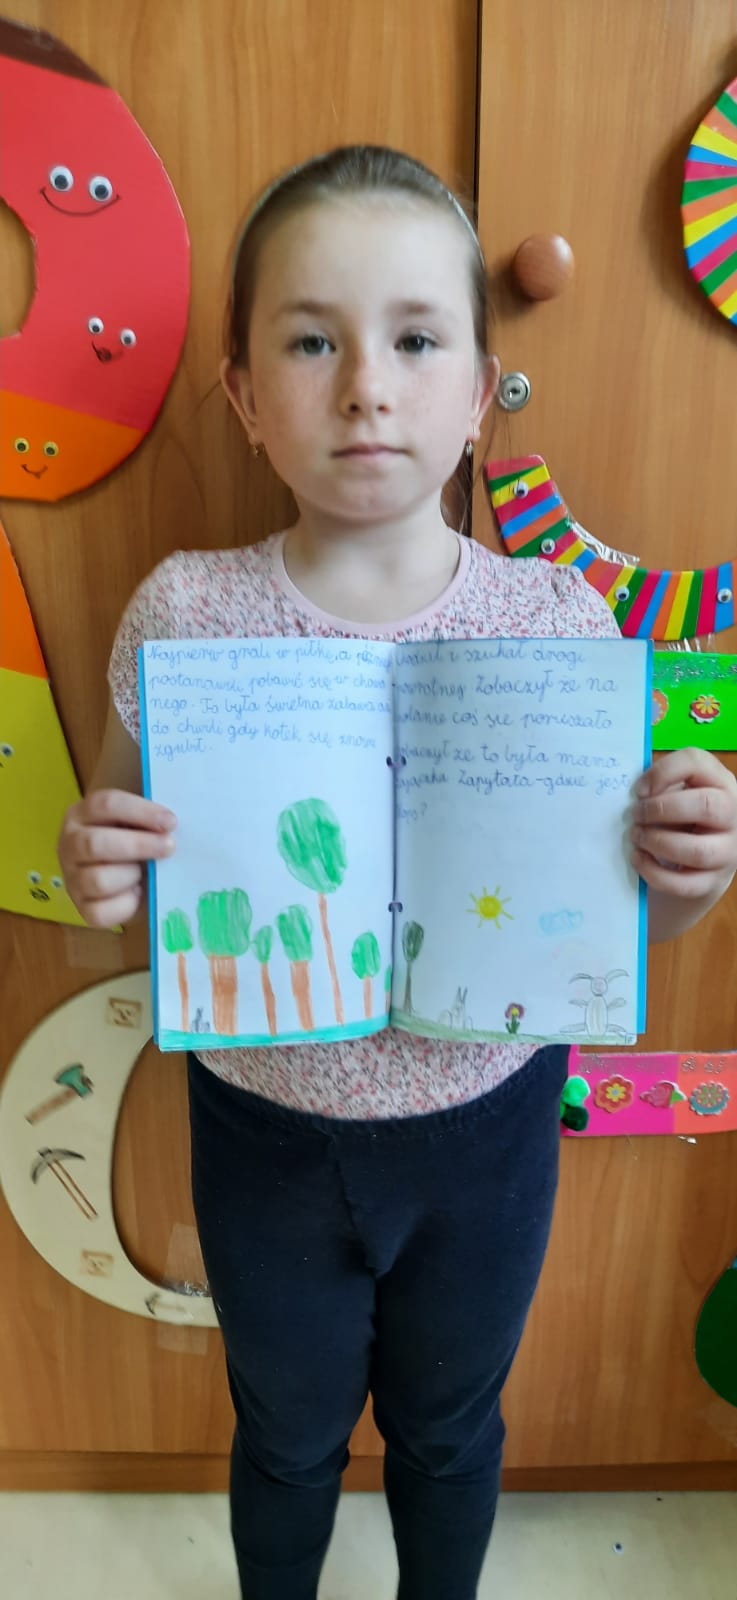 Najpierw grali w piłkę, a później
postanowili pobawić się w chowa
nego. To była świetna zabawa aż
do chwili gdy kotek się znowu
zgubił.
i szukał drogi
powrotnej Zobaczył że na
polanie coś się poruszało
Zobaczył że to była mama
zajączka Zapytała-gdzie jest